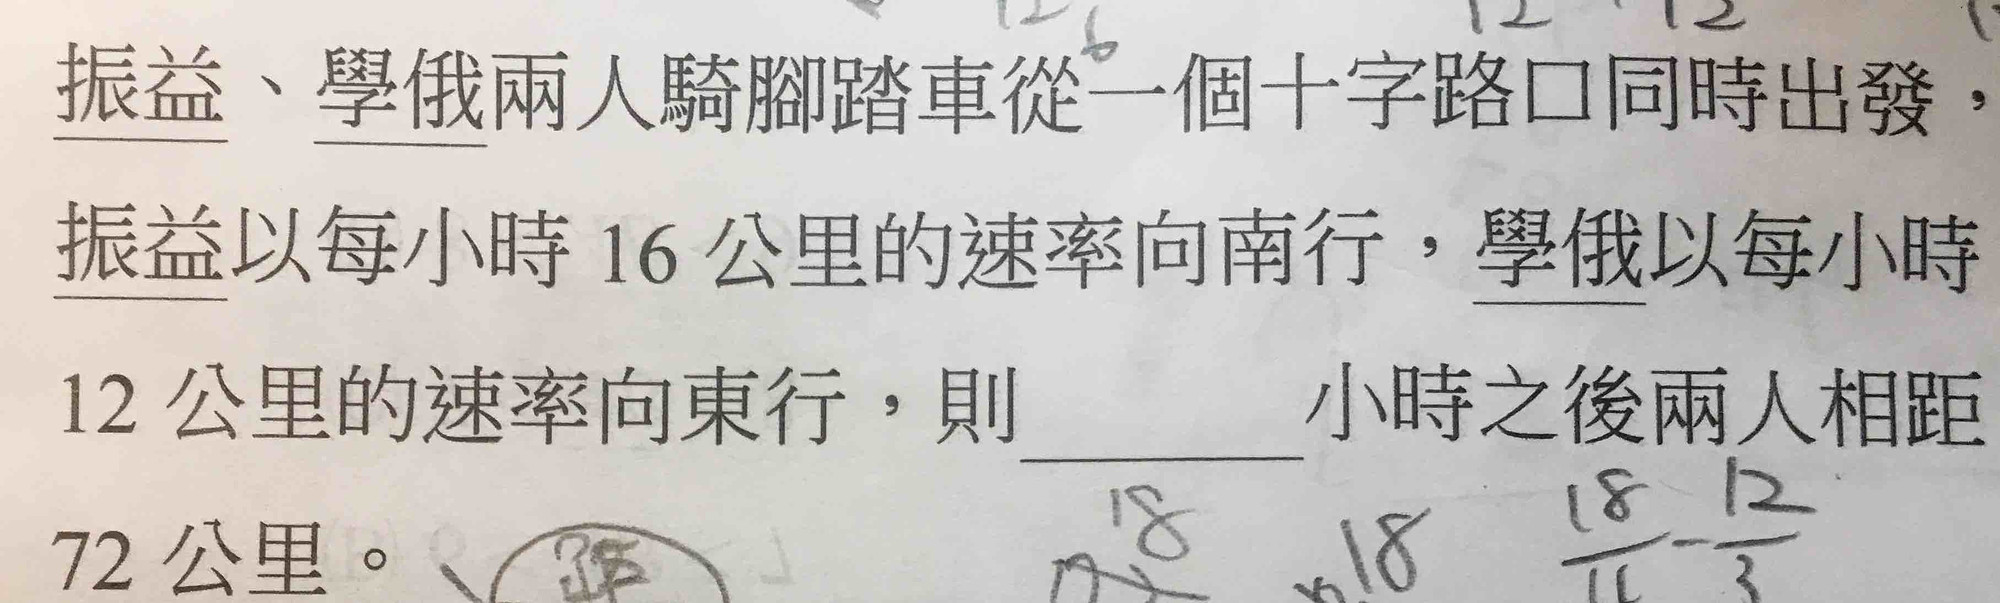 12 6 12 12
振益、學俄兩人騎腳踏車從一個十字路口同時出發，
振益以每小時 16 公里的速率向南行，學俄以每小時
12 公里的速率向東行，則______小時之後兩人相距
72 公里。
18 18 18 - 12
3